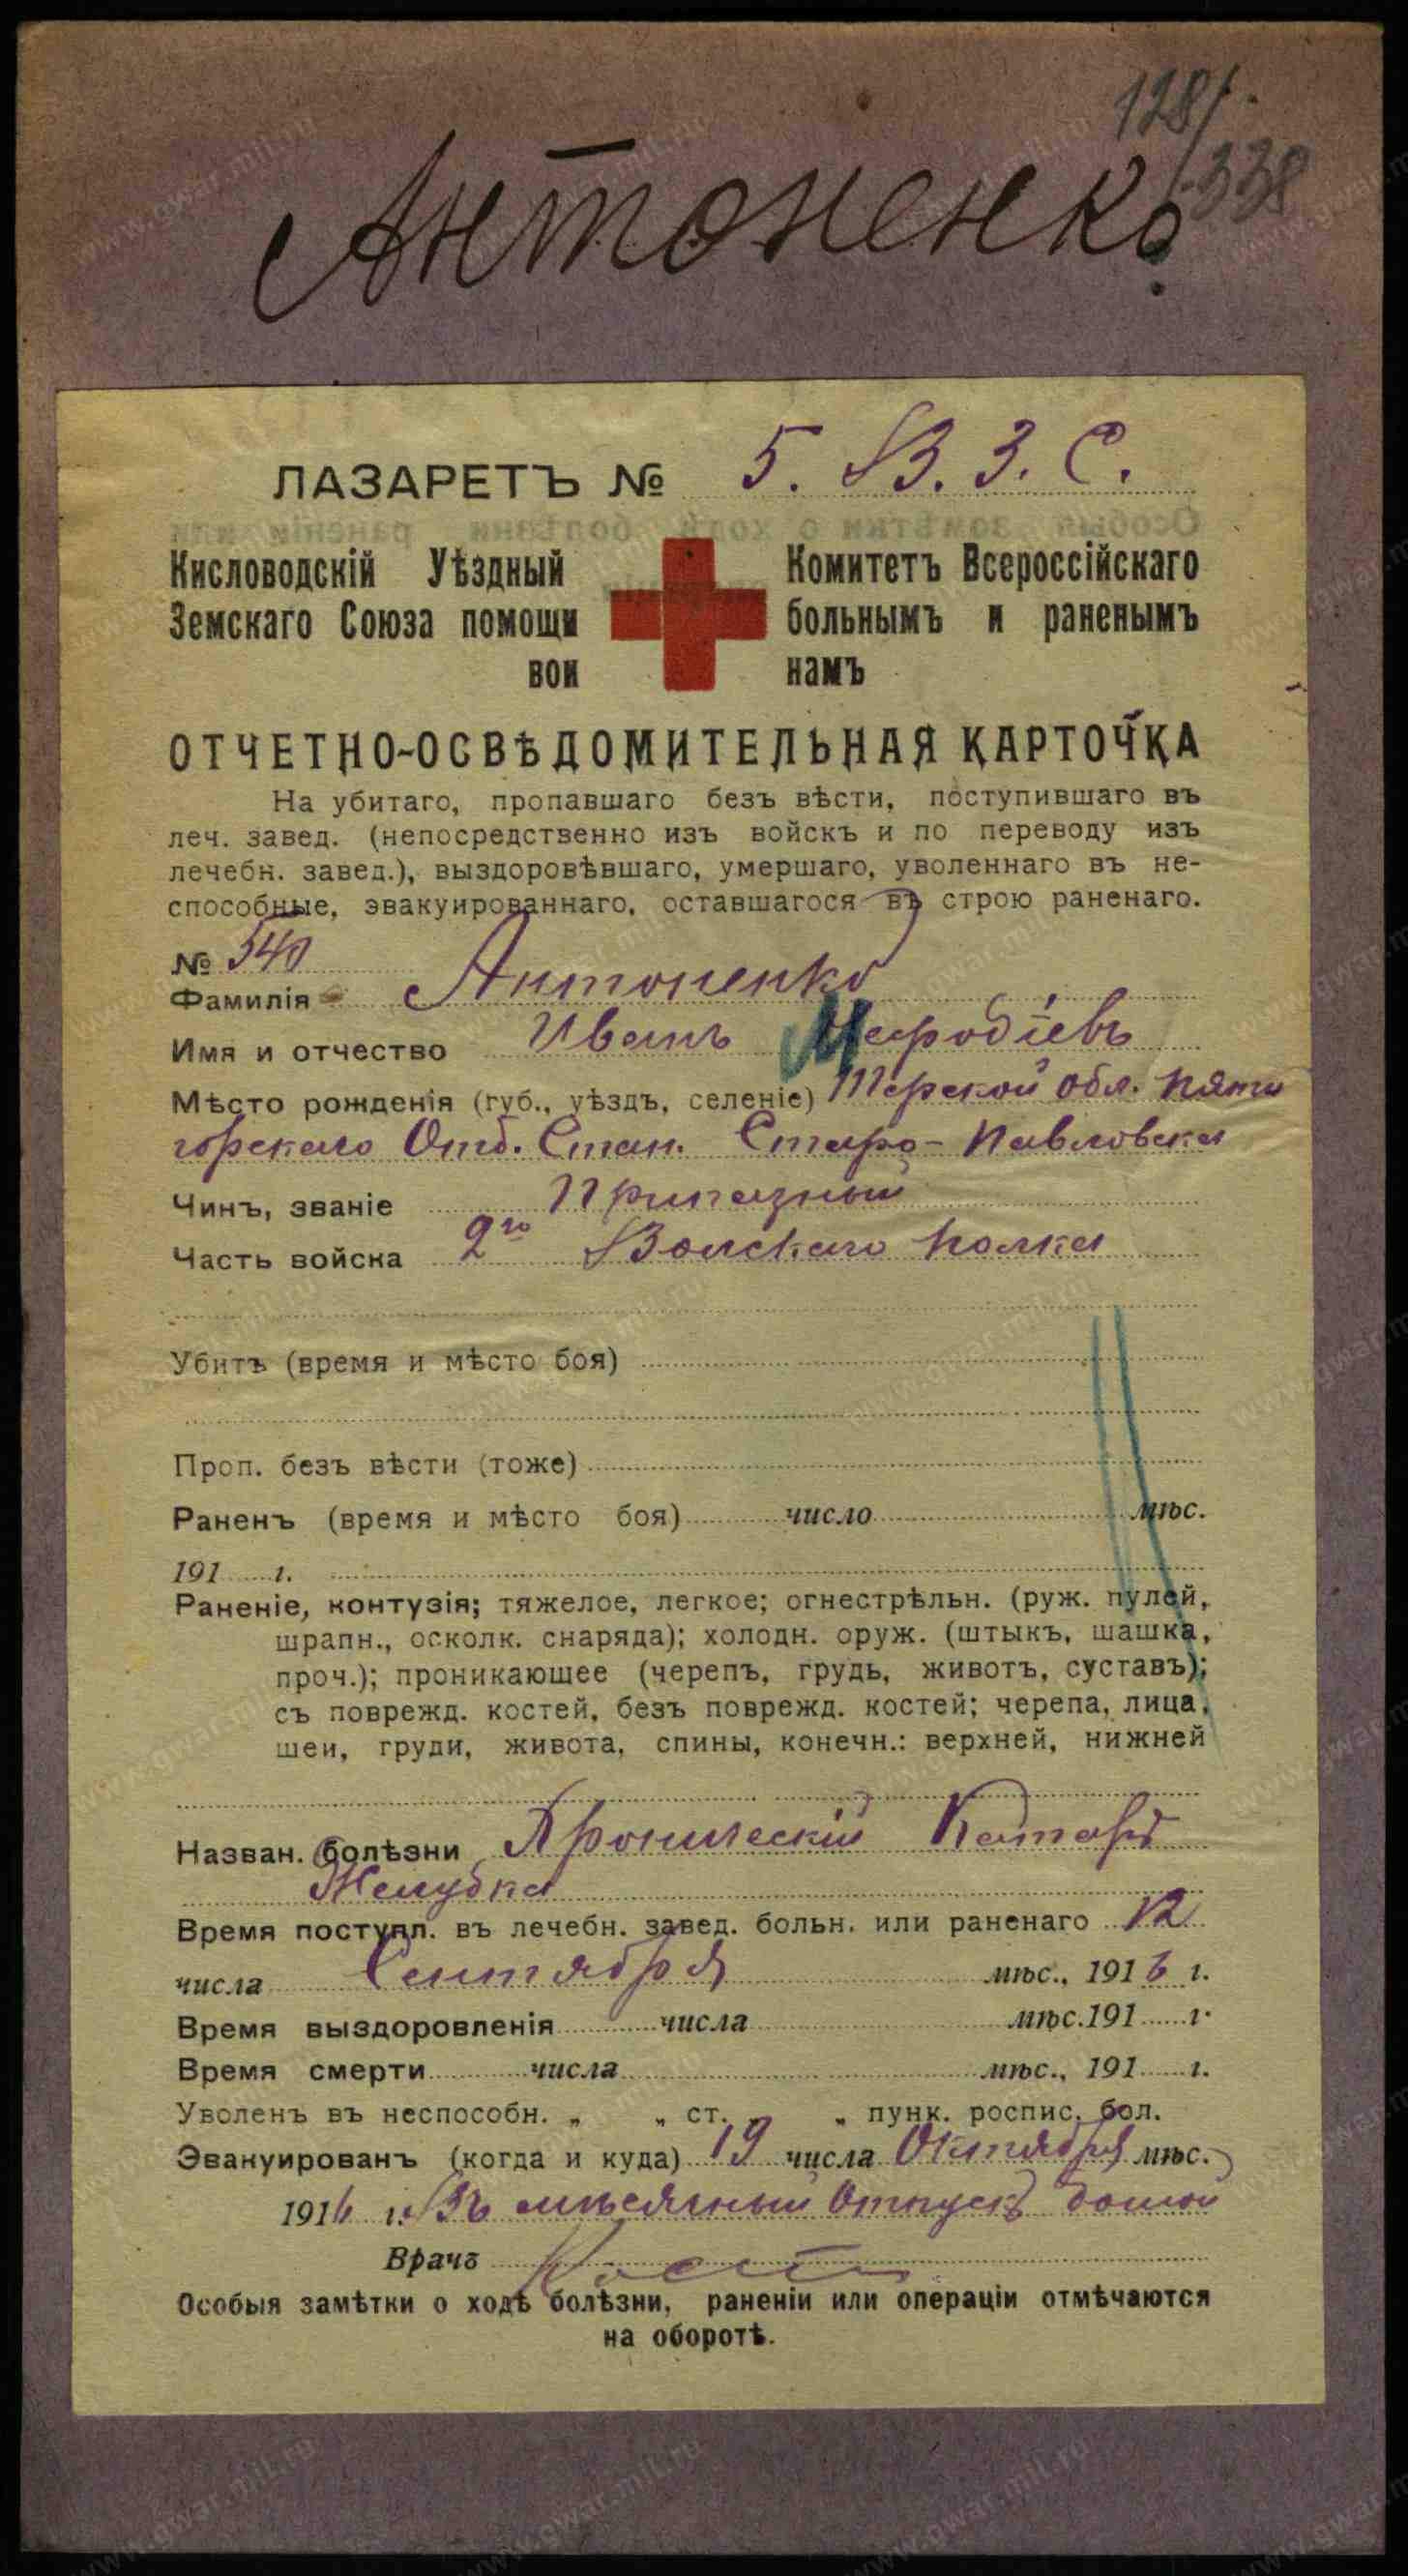 128/338
Антоненко
ЛАЗАРЕТЪ № 5. В. З. С.
Кисловодскій Уѣздный Комитетъ Всероссійскаго
Земскаго Союза помощи больнымъ и раненымъ
вои намъ
ОТЧЕТНО-ОСВѢДОМИТЕЛЬНАЯ КАРТОЧКА
На убитаго, пропавшаго безъ вѣсти, поступившаго въ
леч. завед. (непосредственно изъ войскъ и по переводу изъ
лечебн. завед.), выздоровѣвшаго, умершаго, уволеннаго въ не-
способные, эвакуированнаго, оставшагося въ строю раненаго.
№ 540
Фамилія Антоненко
Имя и отчество Иванъ Мефодіевъ
Мѣсто рожденія (губ., уѣздъ, селеніе) Терской обл. Пяти
горскаго Отд. Стан. Старо-Павловска
Чинъ, званіе Приказный
Часть войска 2го Волскаго полка
Убитъ (время и мѣсто боя)
Проп. безъ вѣсти (тоже)
Раненъ (время и мѣсто боя) число мѣс.
191 г.
Раненіе, контузія; тяжелое, легкое; огнестрѣльн. (руж. пулей,
шрапн., осколк. снаряда); холодн. оруж. (штыкъ, шашка,
проч.); проникающее (черепъ, грудь, животъ, суставъ);
съ поврежд. костей, безъ поврежд. костей; черепа, лица,
шеи, груди, живота, спины, конечн.: верхней, нижней
Назван. болѣзни Хроническій Катаръ
Желудка
Время поступл. въ лечебн. завед. больн. или раненаго 12
числа Сентября мѣс., 1916 г.
Время выздоровленія числа мѣс. 191 г.
Время смерти числа мѣс., 191 г.
Уволенъ въ неспособн. „ „ ст. „ „ пунк. роспис. бол.
Эвакуированъ (когда и куда) 19 числа Октября мѣс.
1916 г. Въ мѣсячный Отпускъ домой
Врачъ
Особыя замѣтки о ходѣ болѣзни, раненіи или операціи отмѣчаются
на оборотѣ.
www.gwar.mil.ru